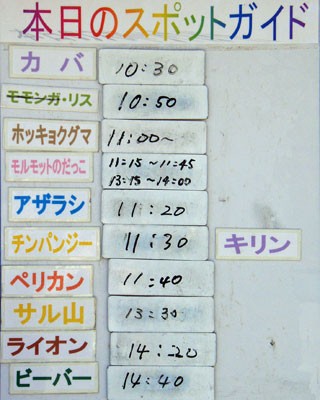 本日のスポットガイド
カバ 10:30
モモンガ・リス 10:50
ホッキョクグマ 11:00~
モルモットのだっこ 11:15~11:45
13:15~14:00
アザラシ 11:20
チンパンジー 11:30 キリン
ペリカン 11:40
サル山 13:30
ライオン 14:20
ビーバー 14:40